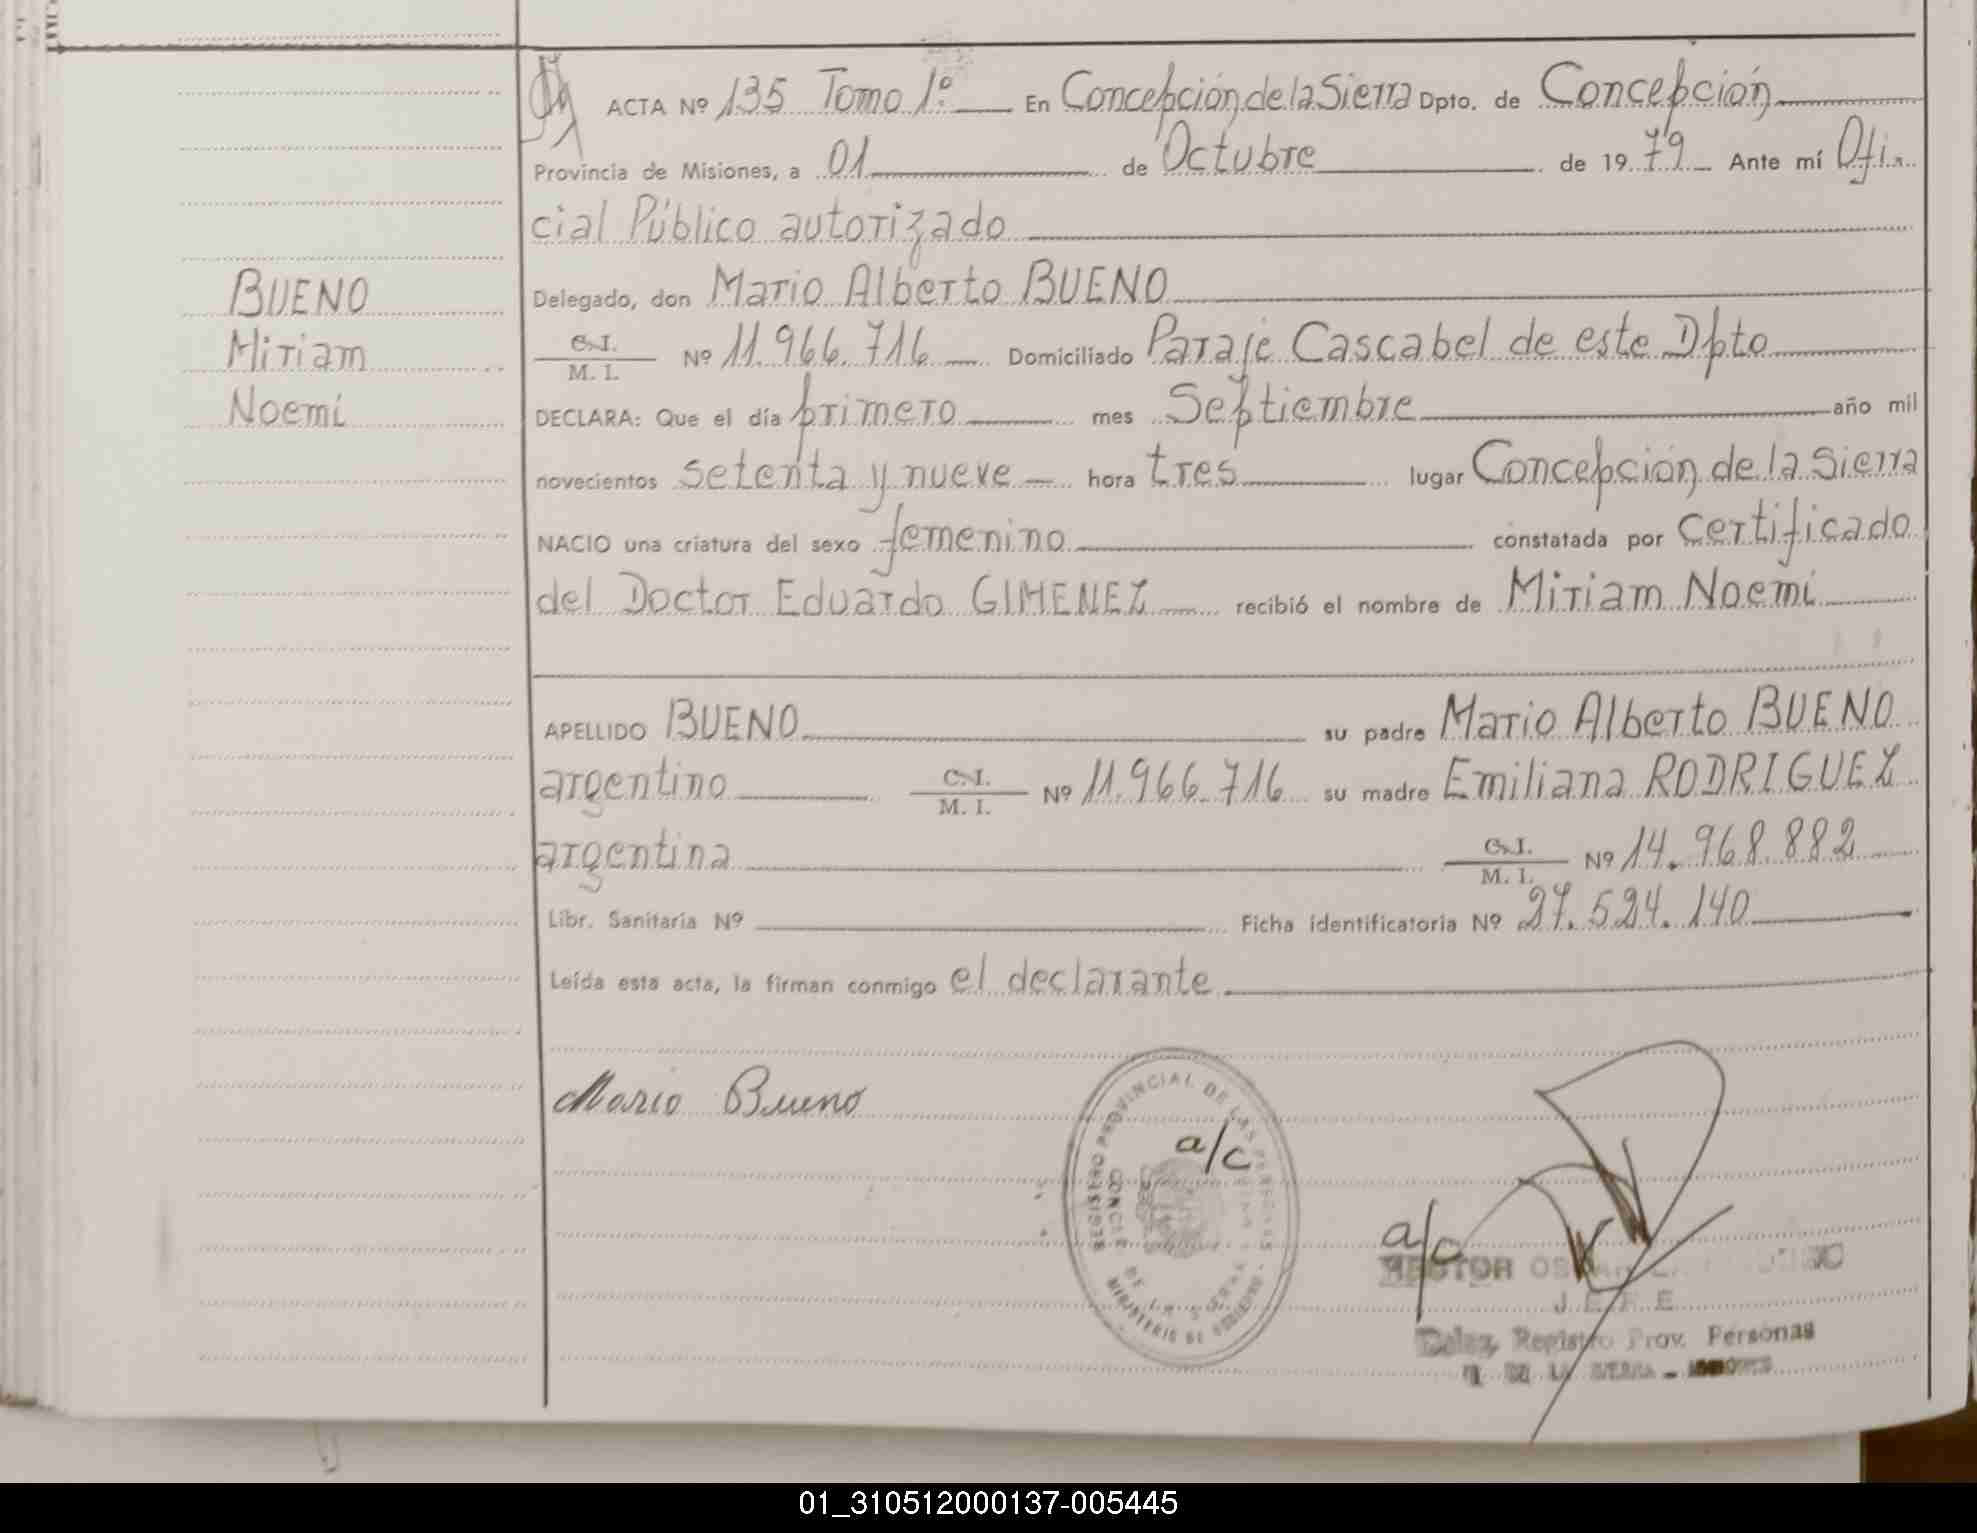 ACTA Nº 135 Tomo 1º En Concepción de la Sierra Dpto. de Concepción
Provincia de Misiones, a 01 de Octubre de 1979 Ante mí Ofi-
cial Público autorizado
BUENO
Miriam
Noemí
Delegado, don Mario Alberto BUENO
C.I. / M. I. Nº 11.966.716 Domiciliado Paraje Cascabel de este Dpto
DECLARA: Que el día primero mes Septiembre año mil
novecientos setenta y nueve hora tres lugar Concepción de la Sierra
NACIO una criatura del sexo femenino constatada por certificado
del Doctor Eduardo GIMENEZ recibió el nombre de Miriam Noemí
APELLIDO BUENO su padre Mario Alberto BUENO
argentino C.I. / M. I. Nº 11.966.716 su madre Emiliana RODRIGUEZ
argentina C.I. / M. I. Nº 14.968.882
Libr. Sanitaria Nº Ficha identificatoria Nº 27.524.140
Leída esta acta, la firman conmigo el declarante
Mario Bueno
REGISTRO PROVINCIAL DE LAS PERSONAS
CONCEP. DE LA SIERRA
MINISTERIO DE GOBIERNO
a/c
a/c
HECTOR
JEFE
Deleg. Registro Prov. Personas
DE LA SIERRA - MISIONES
01_310512000137-005445